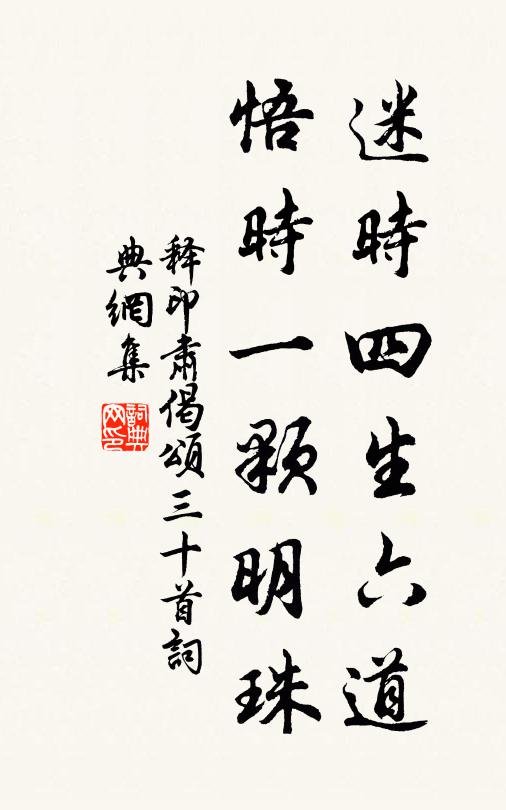 迷時四生六道
悟時一顆明珠
释印肅偈頌三十首詞
典網集
詞典
网印